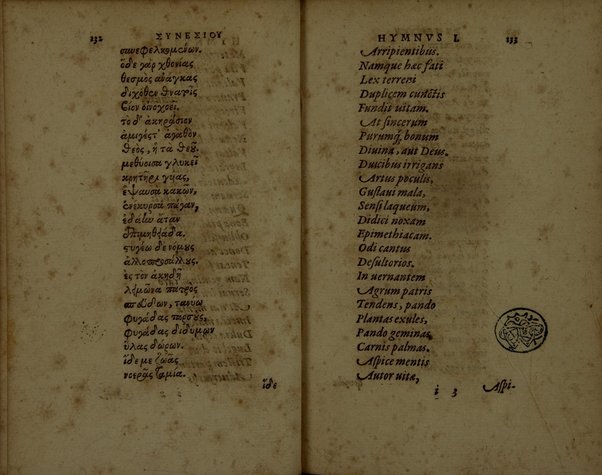 132 ΣΥΝΕΣΙΟΥ
συνεφελκομένων.
ὅδε γὰρ χθονίας
θεσμὸς ἀνάγκας
διχόθεν θνατοῖς
βίον οἰνοχοεῖ.
τὸ δ' ἀκηράσιον
ἀμιγές τ' ἀγαθὸν
θεὸς, ἢ τὰ θεοῦ.
μεθύοισα γλυκεῖ
κρητῆρι γυίας,
ἔψαυσα κακῶν,
ἐνέκυρσα πάγαν,
ἐδάην ἄταν
Ἐπιμηθιάδα.
στυγέω δὲ νόμους
ἀλλοπροσάλλους.
ἐς τὸν ἀκηδῆ
λειμῶνα πατρὸς
σπεύδων, τανύω
φυγάδας ταρσοὺς,
φυγάδας διδύμων
ὕλας δώρων.
ἴδε με ζωᾶς
νοερᾶς ταμία.
ἴδε
HYMNVS I. 133
Arripientibus.
Namque hæc fati
Lex terreni
Duplicem cunctis
Fundit uitam.
At sincerum
Purumq́; bonum
Diuina, aut Deus.
Dulcibus irrigans
Artus poculis,
Gustaui mala,
Sensi laqueum,
Didici noxam
Epimethiacam.
Odi cantus
Desultorios.
In uernantem
Agrum patris
Tendens, pando
Plantas exules,
Pando geminas
Carnis palmas.
Aspice mentis
Autor uitæ,
i 3 Aspi-